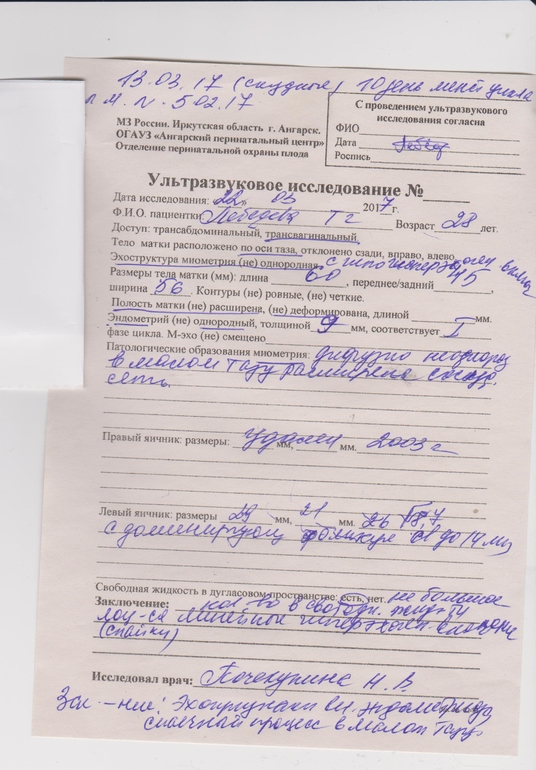 13.03.17 (скудные) 10 день менстр. цикла
п.м. N. 5.02.17
С проведением ультразвукового
исследования согласна
ФИО
Дата
Роспись
МЗ России. Иркутская область г. Ангарск.
ОГАУЗ «Ангарский перинатальный центр»
Отделение перинатальной охраны плода
Ультразвуковое исследование №
Дата исследования: 22» 03 2017 г.
Ф.И.О. пациентки Лебедева Т г Возраст 28 лет.
Доступ: трансабдоминальный, трансвагинальный.
Тело матки расположено по оси таза, отклонено сзади, вправо, влево.
Эхоструктура миометрия (не) однородная, с гиперэхоген.
Размеры тела матки (мм): длина 60, переднее/задний 45,
ширина 56. Контуры (не) ровные, (не) четкие.
Полость матки (не) расширена, (не) деформирована, длиной мм.
Эндометрий (не) однородный, толщиной 9 мм, соответствует I
фазе цикла. М-эхо (не) смещено
Патологические образования миометрия: диффузно неоднород
в малом тазу расширена сосуд.
сеть.
Правый яичник: размеры: удален мм, мм. 2003 г
Левый яичник: размеры 29 мм, 21 мм. 26 V8,7
с доминирующ фолликул св до 14 мм
Свободная жидкость в дугласовом пространстве: есть, нет. не большое
Заключение: кол-во в свободн. жидкости
лоц-ся линейные гиперэхоген. включения
(спайки)
Исследовал врач: Н. В.
Зак-ние: Эхопризнаки вн. эндометриоза,
спаечный процесс в малом тазу.